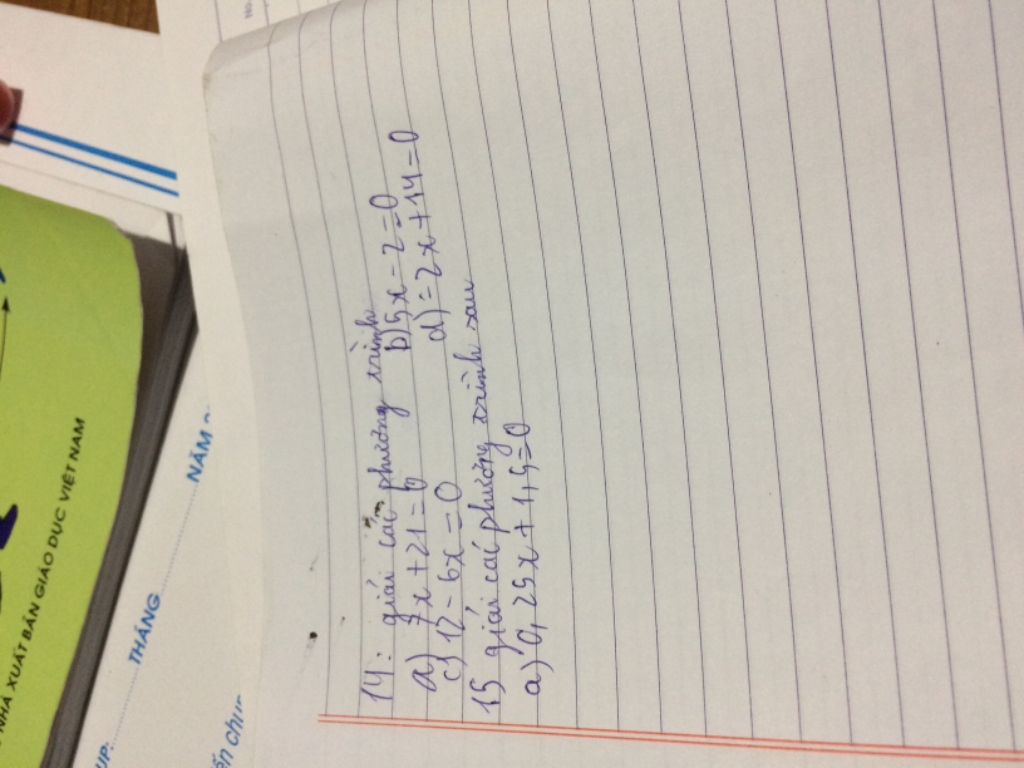 14: giải các phương trình
a) 7x + 21 = 0 b) 5x - 2 = 0
c) 12 - 6x = 0 d) = 2x + 14 = 0
15 giải các phương trình sau
a) 0,25x + 1,5 = 0
NHÀ XUẤT BẢN GIÁO DỤC VIỆT NAM
THÁNG NĂM
UP:
No.